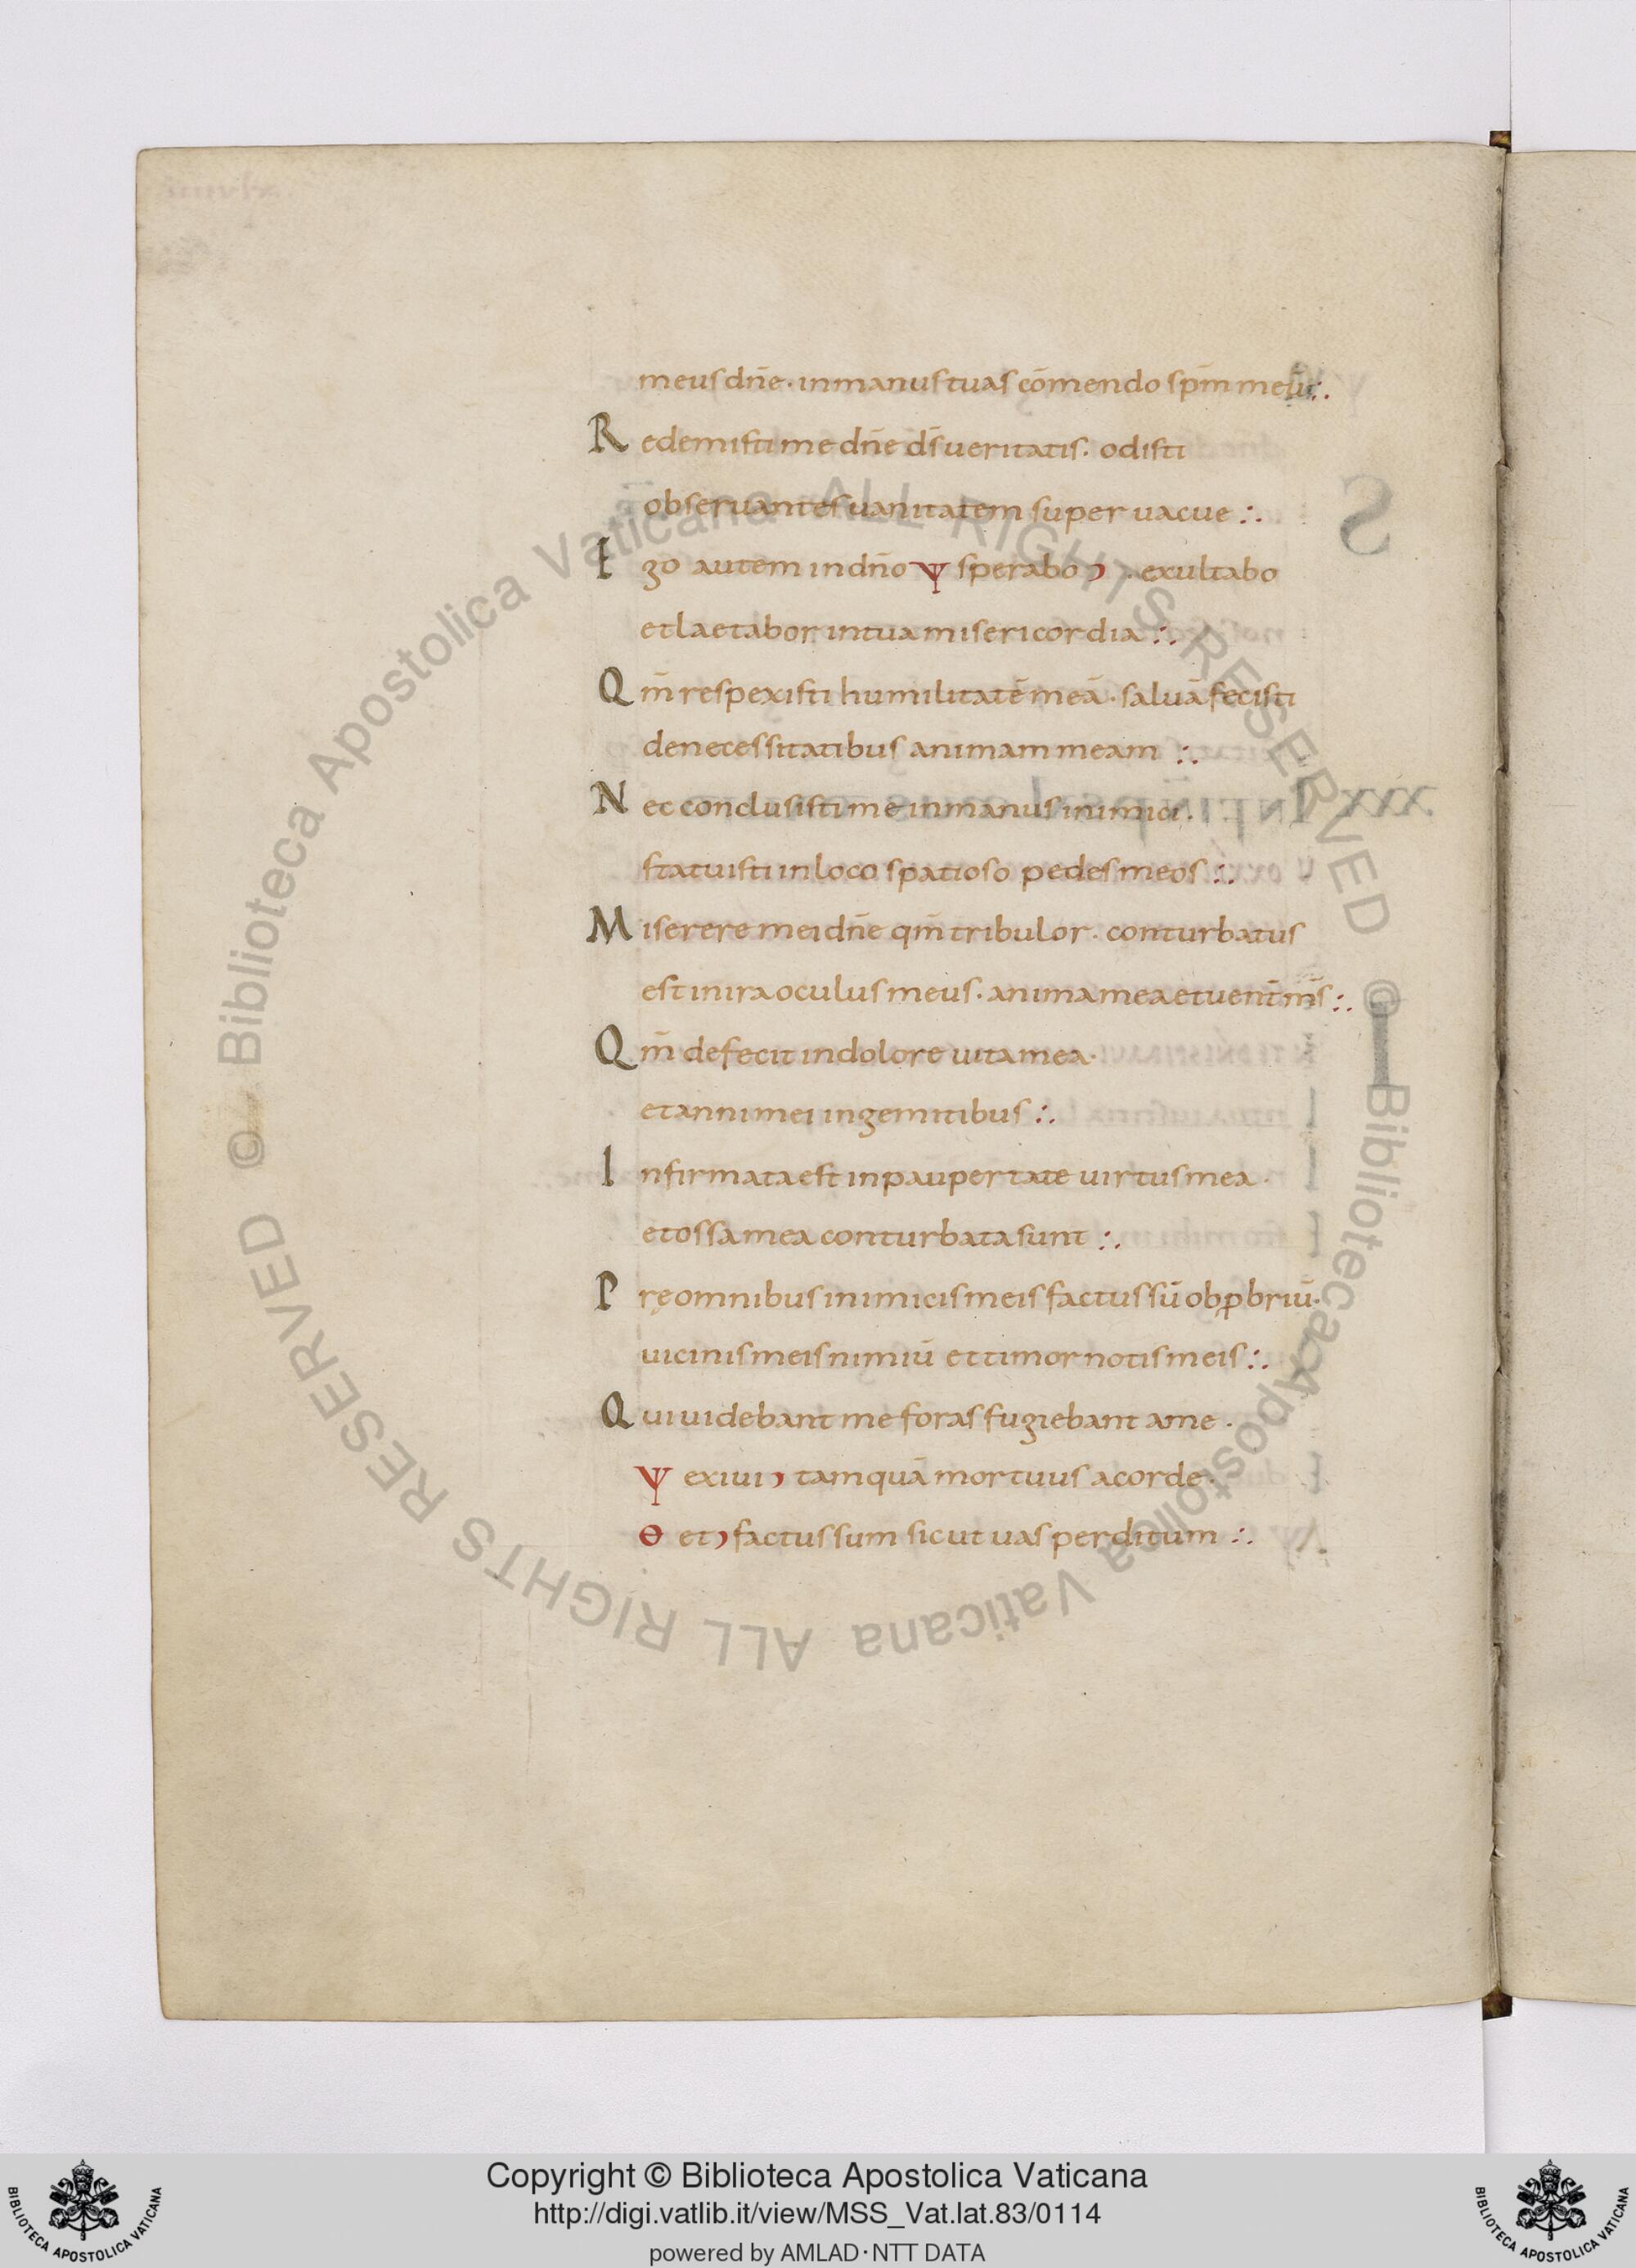 meus dñe · in manus tuas cōmendo sp̄m meū :.
Redemisti me dñe d̄s ueritatis · odisti
obseruantes uanitatem super uacue :.
Ego autem in dño Ψ sperabo ϶ · exultabo
et laetabor in tua misericordia :.
Qm̄ respexisti humilitatē meā · saluā fecisti
de necessitatibus animam meam :.
Nec conclusisti me in manus inimici ·
statuisti in loco spatioso pedes meos :.
Miserere mei dñe qm̄ tribulor · conturbatus
est in ira oculus meus · anima mea et uent̄ m̄s :.
Qm̄ defecit in dolore uita mea ·
et anni mei in gemitibus :.
Infirmata est in paupertate uirtus mea ·
et ossa mea conturbata sunt :.
Pręomnibus inimicis meis factus sū obꝓbriū ·
uicinis meis nimiū et timor notis meis :.
Qui uidebant me foras fugiebant a me ·
Ψ exiui ϶ tamquā mortuus a corde ·
Θ et ϶ factus sum sicut uas perditum :.
© Biblioteca Apostolica Vaticana ALL RIGHTS RESERVED
© Biblioteca Apostolica Vaticana ALL RIGHTS RESERVED
BIBLIOTECA APOSTOLICA VATICANA
Copyright © Biblioteca Apostolica Vaticana
http://digi.vatlib.it/view/MSS_Vat.lat.83/0114
powered by AMLAD·NTT DATA
BIBLIOTECA APOSTOLICA VATICANA